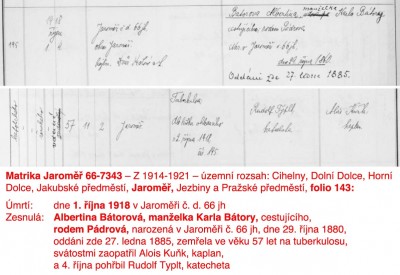 1918
října
1. 4.
195
Jaroměř č. 66 jh.
Bátorová Albertina, manželka Karla Bátory,
cestujícího, rodem Pádrová,
nar. v Jaroměři č. 66 jh.
dne 29. října 1880.
Oddáni dne 27. ledna 1885.
57 11 2
Jaroměř
Tuberkulosa
Rudolf Typlt,
katecheta
Alois Kuňk,
kaplan
Matrika Jaroměř 66-7343 – Z 1914-1921 – územní rozsah: Cihelny, Dolní Dolce, Horní
Dolce, Jakubské předměstí, Jaroměř, Jezbiny a Pražské předměstí, folio 143:
Úmrtí: dne 1. října 1918 v Jaroměři č. d. 66 jh
Zesnulá: Albertina Bátorová, manželka Karla Bátory, cestujícího,
rodem Pádrová, narozená v Jaroměři č. 66 jh, dne 29. října 1880,
oddáni zde 27. ledna 1885, zemřela ve věku 57 let na tuberkulosu,
svátostmi zaopatřil Alois Kuňk, kaplan,
a 4. října pohřbil Rudolf Typlt, katecheta